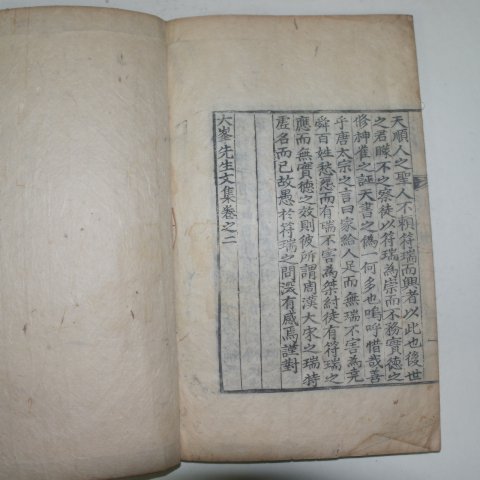 天順人之聖人不賴符瑞而興者以此也後世
之君矇不之察徒以符瑞為崇而不務實德之
修神雀之誣天書之僞一何多也嗚呼惜哉善
乎唐太宗之言曰家給人足而無瑞不害為堯
舜百姓愁怨而有瑞不害為桀紂徒有符瑞之
應而無實德之效則彼所謂周漢大宋之瑞特
虛名而已故愚於符瑞之問深有感焉謹對
大峯先生文集卷之二